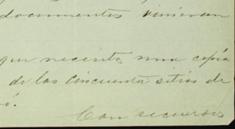 documentos vinieran
que necesito una copia
de los cincuenta sitios de
Con recuerdos